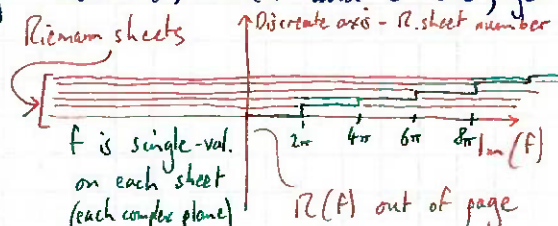 Riemann sheets
Discrete axis - R. sheet number
2π 4π 6π 8π Im(f)
f is single-val.
on each sheet
(each complex plane)
R(f) out of page